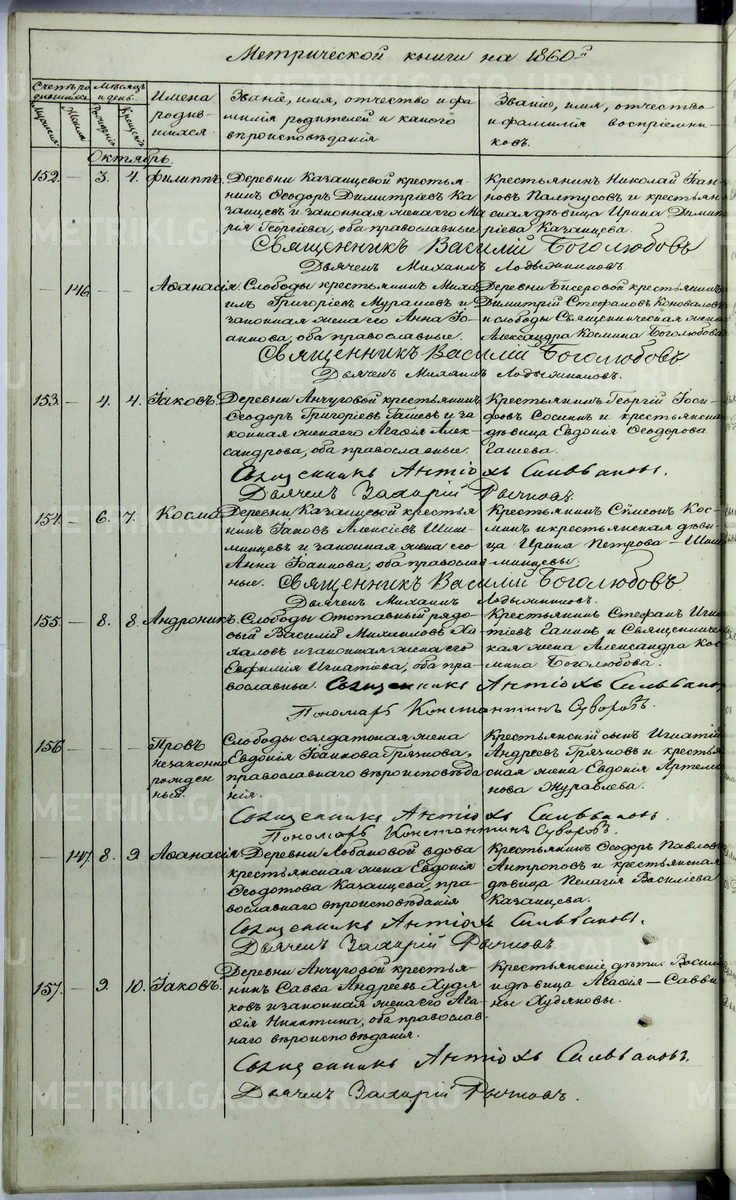 Метрической книги на 1860й
Счетъ родившихся
Мужеска
Женска
Мѣсяцъ и день
Рожденія
Крещенія
Имена родившихся
Званіе, имя, отчество и фамилія родителей и какого вѣроисповѣданія
Званіе, имя, отчество и фамилія воспріемниковъ.
Октябрь.
152. — 3. 4. Филиппъ.
Деревни Казанцевой крестьянинъ Ѳеодоръ Димитріевъ Казанцевъ и законная жена его Марія Георгіева, оба православные
Крестьянинъ Николай Іоанновъ Палтусовъ и крестьянская дѣвица Ирина Димитріева Казанцева.
Священникъ Василій Боголюбовъ
Дьячекъ Михаилъ
— 146. — — Аѳанасія.
Слободы крестьянинъ Михаилъ Григоріевъ Мурашев и законная жена его Анна Іоаннова, оба православные.
Деревни крестьянинъ Димитрій Стефановъ Коноваловъ и слободы Священническая жена Александра Космина Боголюбова
Священникъ Василій Боголюбовъ
Дьячекъ Михаилъ
153. — 4. 4. Іаковъ.
Деревни Анчуговой крестьянинъ Ѳеодоръ Григоріевъ Гашев и законная жена его Агаѳія Александрова, оба православные.
Крестьянинъ Георгій Іосифовъ Соснин и крестьянская дѣвица Евдокія Ѳеодорова Гашева.
Священникъ Антіохъ Сильвановъ.
Дьячекъ Захарій Рычковъ.
154. — 6. 7. Косма
Деревни Казанцевой крестьянинъ Іаковъ Алексіевъ и законная жена его Анна Іоаннова, оба православные.
Крестьянинъ Сѷмеонъ Косминъ и крестьянская дѣвица Ирина Петрова —
Священникъ Василій Боголюбовъ
Дьячекъ Михаилъ
155. — 8. 8. Андроникъ.
Слободы Отставный рядовый Василій Михаиловъ и законная жена его Евфимія Игнатіева, оба православные.
Крестьянинъ Стефанъ Игнатіевъ и Священническая жена Александра Космина Боголюбова.
Священникъ Антіохъ Сильвановъ
Пономарь Константинъ Суворовъ.
156 — — — Провъ незаконнорожденный.
Слободы солдатская жена Евдокія Іоаннова Грязнова, православнаго вѣроисповѣданія.
Крестьянскій сынъ Игнатій Андреевъ Грязновъ и крестьянская жена Евдокія Артемонова Журавлева.
Священникъ Антіохъ Сильвановъ
Пономарь Константинъ Суворовъ.
— 147. 8. 9. Аѳанасія.
Деревни Лобановой вдова крестьянская жена Евдокія Ѳеодотова Казанцева, православнаго вѣроисповѣданія
Крестьянинъ Ѳеодоръ Павловъ Антроповъ и крестьянская дѣвица Пелагія Василіева Казанцева.
Священникъ Антіохъ Сильвановъ.
Дьячекъ Захарій Рычковъ.
157. — 9. 10. Іаковъ.
Деревни Анчуговой крестьянинъ Савва Андреевъ Худяковъ и законная жена его Агаѳія Никитина, оба православнаго вѣроисповѣданія.
Крестьянскіе дѣти Васил и дѣвица Агаѳія — Саввины Худяковы.
Священникъ Антіохъ Сильвановъ.
Дьячекъ Захарій Рычковъ.
METRIKI.GASO-URAL.RU